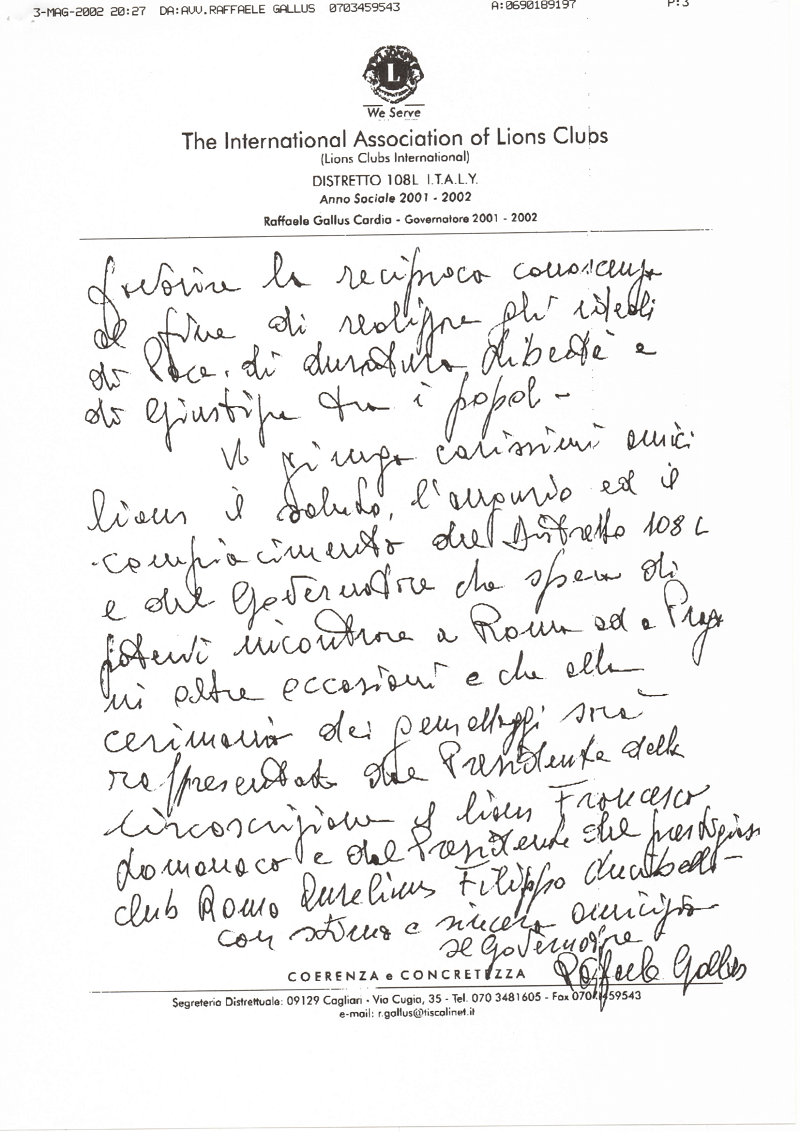 3-MAG-2002 20:27 DA:AVV.RAFFAELE GALLUS 0703459543 A:0690189197 P:3
L
We Serve
The International Association of Lions Clubs
(Lions Clubs International)
DISTRETTO 108L I.T.A.L.Y.
Anno Sociale 2001 - 2002
Raffaele Gallus Cardia - Governatore 2001 - 2002
favorire la reciproca conoscenza
al fine di realizzare gli ideali
di Pace, di duratura libertà e
di Giustizia tra i popoli -
Vi giunga carissimi amici
lions il saluto, l'augurio ed il
compiacimento del Distretto 108 L
e del Governatore che spera di
potervi incontrare a Roma ed a Praga
in altre occasioni e che alla
cerimonia dei gemellaggi sarà
rappresentato dal Presidente della
Circoscrizione il lions Francesco
Lomonaco e dal Presidente del prestigioso
club Roma Aurelium Filippo
con stima e sincera amicizia
Il Governatore
Raffaele Gallus
COERENZA e CONCRETEZZA
Segreteria Distrettuale: 09129 Cagliari - Via Cugia, 35 - Tel. 070 3481605 - Fax 070 3459543
e-mail: r.gallus@tiscalinet.it